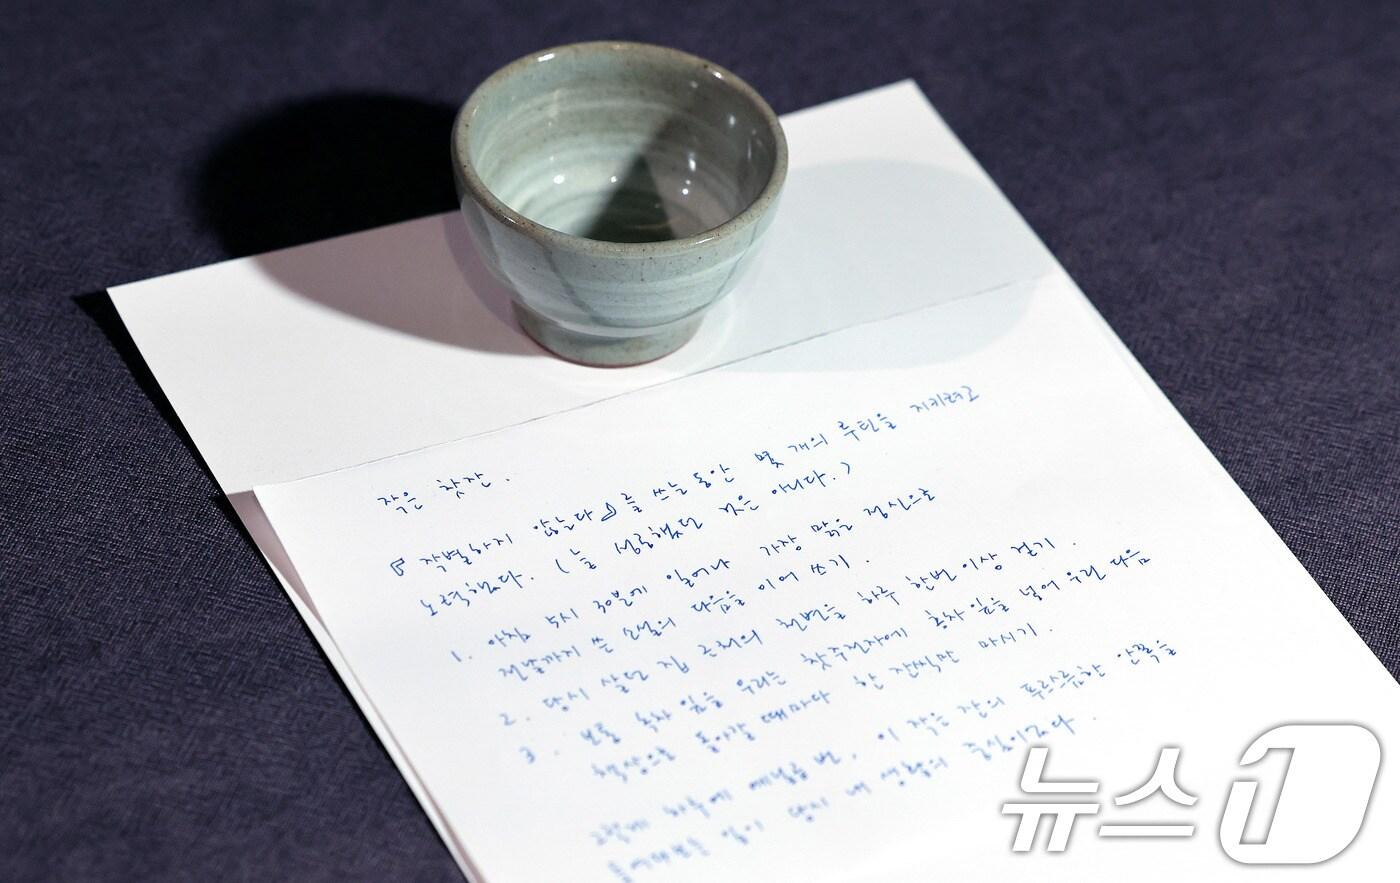 작은 찻잔.
『작별하지 않는다』를 쓰는 동안 몇 개의 루틴을 지키려고
노력했다. (늘 성공했던 것은 아니다.)
1. 아침 5시 반에 일어나 가장 맑은 정신으로
전날까지 쓴 소설의 다음을 이어 쓰기.
2. 당시 살던 집 근처의 천변을 하루 한번 이상 걷기.
3. 보통 녹차 잎을 우리는 찻주전자에 홍차잎을 넣어 우린 다음
책상으로 돌아갈 때마다 한 잔씩만 마시기.
그렇게 하루에 예닐곱 번, 이 작은 잔의 푸르스름한 안쪽을
들여다보는 일이 당시 내 생활의 중심이었다.
뉴스1